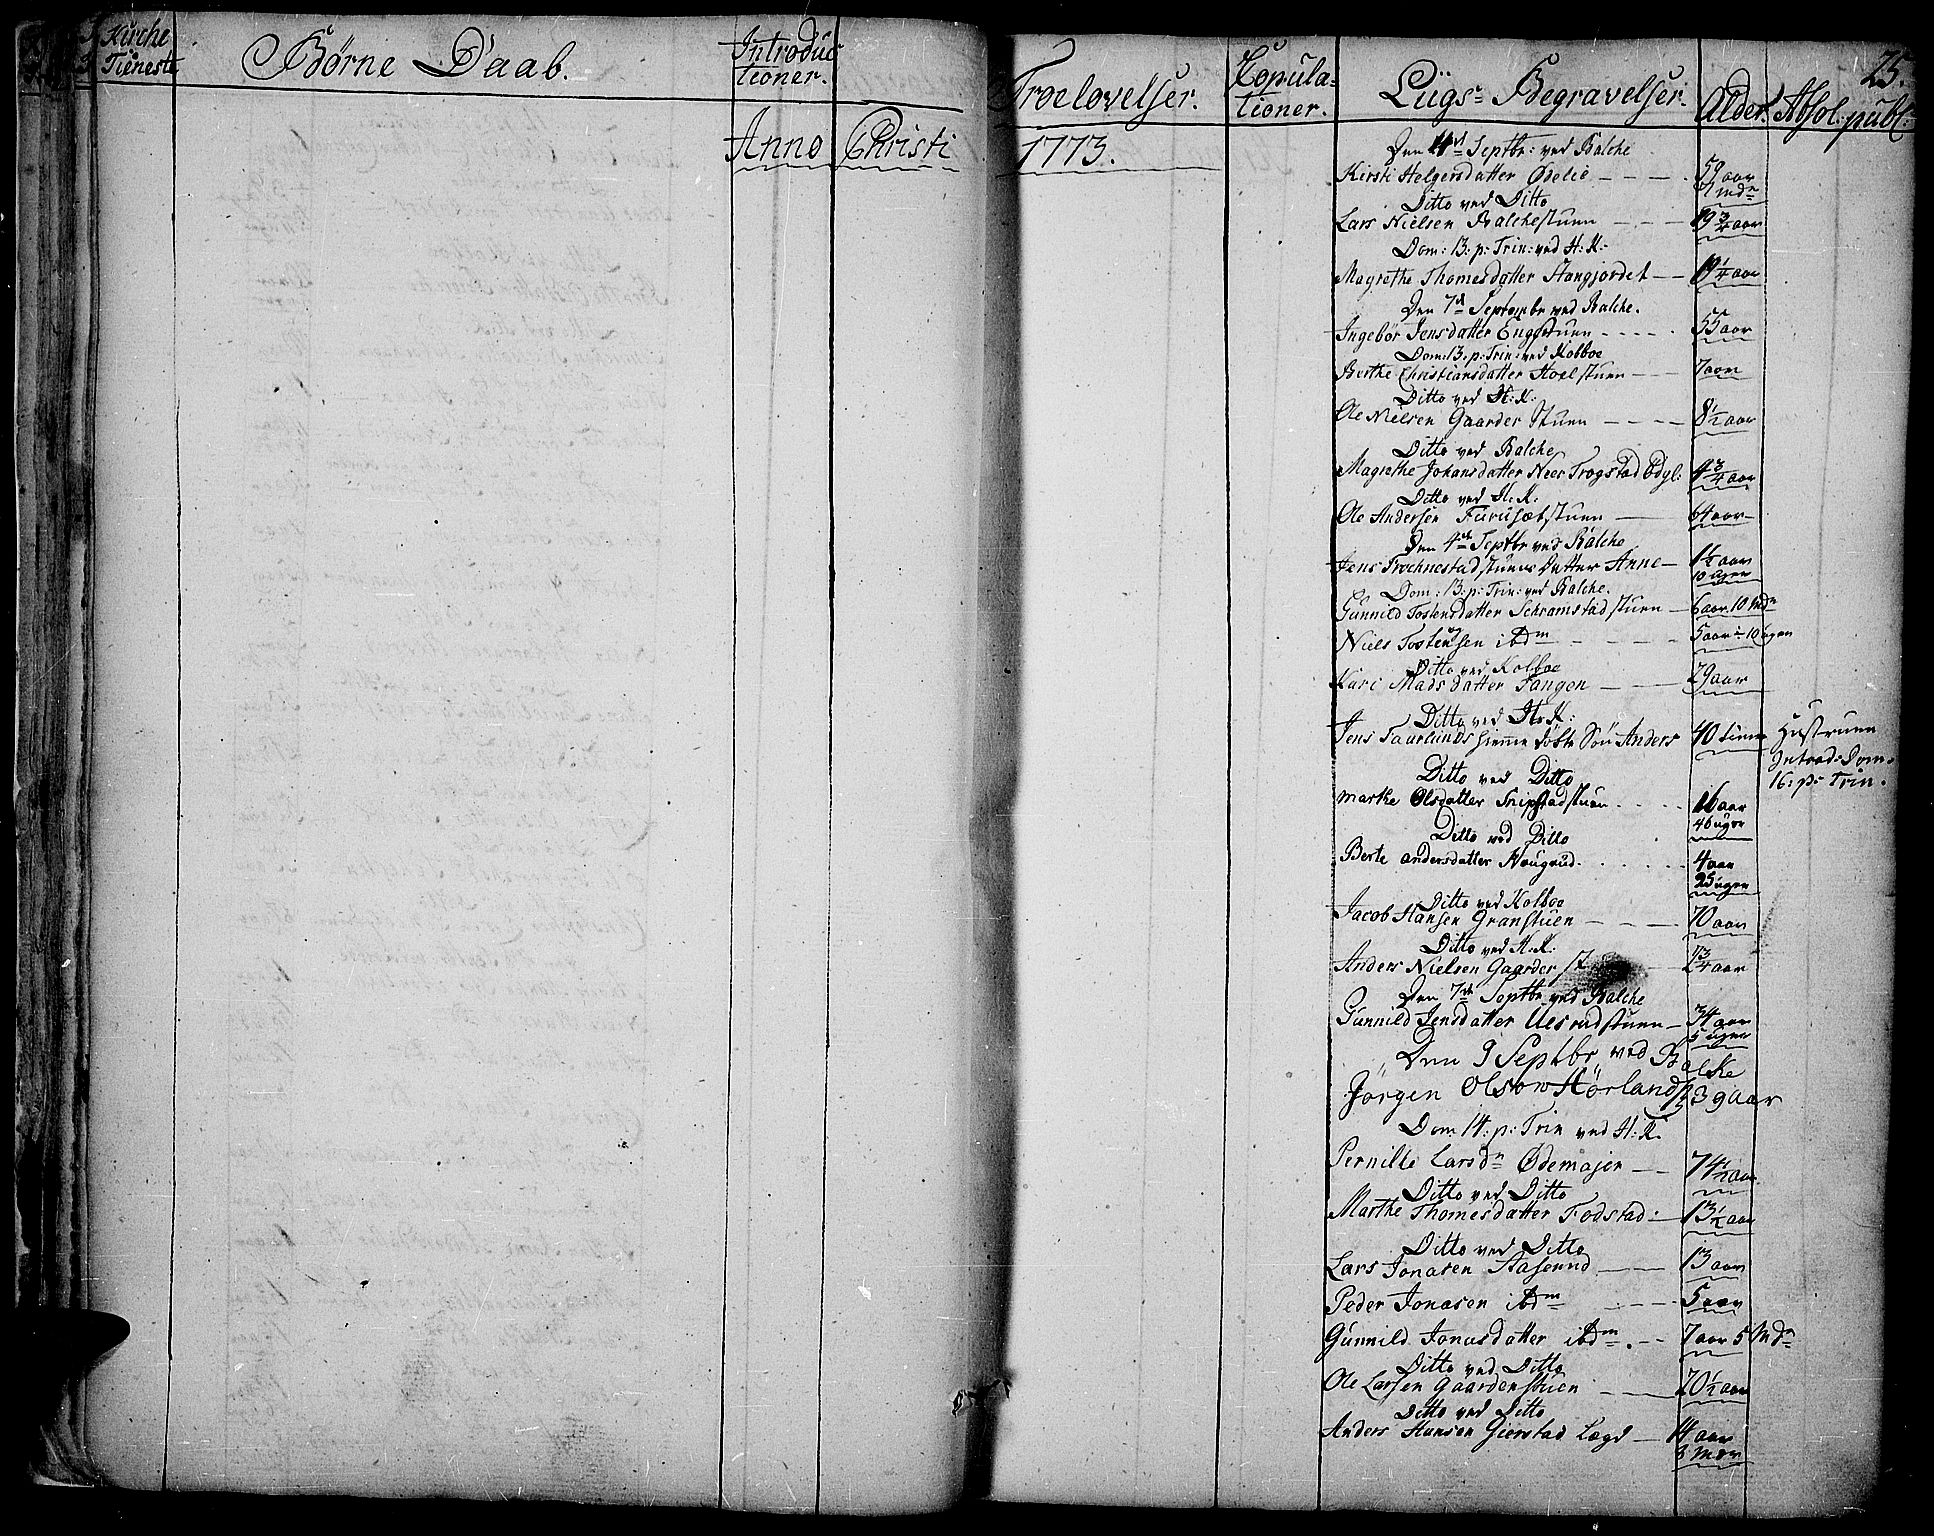 Kirche
Tieneste
Børne Daab.
Introduc
tioner.
Troelovelser.
Copula-
tioner.
Liigs- Begravelser.
Alder.
Absol: publ:
25.
Anno Christi 1773.
Den 4de Septbr: ved Balche
Kirsti Helgersdatter Ødelie - - - 59 aar
7 mdr
Ditto ved Ditto
Lars Nielsen Balchestuen - - - 19 3/4 aar
Dom: 13: p: Trin: ved H: K:
Magrethe Thomesdatter Stangjordet - - 1/4 aar
Den 7de Septembr ved Balche.
Ingebor Jensdatter Engestuen - - - - 55 aar
Dom: 13: p: Trin: ved Kolboe
Berthe Christiansdatter Hoelstuen - - - 7 aar
Ditto ved H: K:
Ole Nielsen Gaarder Stuen - - - - 8 1/2 aar
Ditto ved Balche
Magrethe Johansdatter Neer Trogstad Ødgl: 4 3/4 aar
Ditto ved H: K:
Ole Andersen Furusæbstuen - - 64 aar
Den 4de Septbr ved Balche
Jens Prechnestadstuens Datter Anne - 1 1/2 aar
10 uger
Dom: 13: p: Trin: ved Balche.
Gunnild Tostensdatter Schramstadstuen - 6 aar 10 Mdr
Niels Tostensen ibdm - - - - 5 aar - 10 ugen
Ditto ved Kolboe
Kari Madsdatter Tangen - - - 29 aar
Ditto ved H: K:
Jens Faurlunds hiemme døbte Søn Anders 40 timer
Hustruen
Introd: Dom:
16: p: Trin.
Ditto ved Ditto
Marthe Olsdatter Snipstadstuen . . . . 16 aar
40 uger
Ditto ved Ditto
Berte andersdatter Haugrud . . . . . 4 aar
25 ugen
Ditto ved Kolboe
Jacob Hansen Granstuen - - - - 70 aar
Ditto ved H: K:
Anders Nielsen Gaarder St 2 3/4 aar
Den 7de Septbr ved Balche
Gunnild Jensdatter Ulsrudstuen - 34 aar
5 uger
Den 9 Septbr ved Balke
Jørgen Olsen Hørland 39 aar
Dom: 14: p: Trin ved H: K.
Pernille Larsdr Ødemajer - - 74 1/2 aar
Ditto ved Ditto
Marthe Thomesdatter Fodstad: - 13 1/2 aar
Ditto ved Ditto
Lars Jonasen Stasound - - - 13 aar
Peder Jonasen ibdm - - - - 5 aar
Gunnild Jonasdatter ibdm . - - 7 aar 5 Mdr
Ditto ved Ditto
Ole Larsen Gaardenstuen - - - 70 1/2 aar
Ditto ved Ditto
Anders Hansen Gierstad Lægd - 14 aar